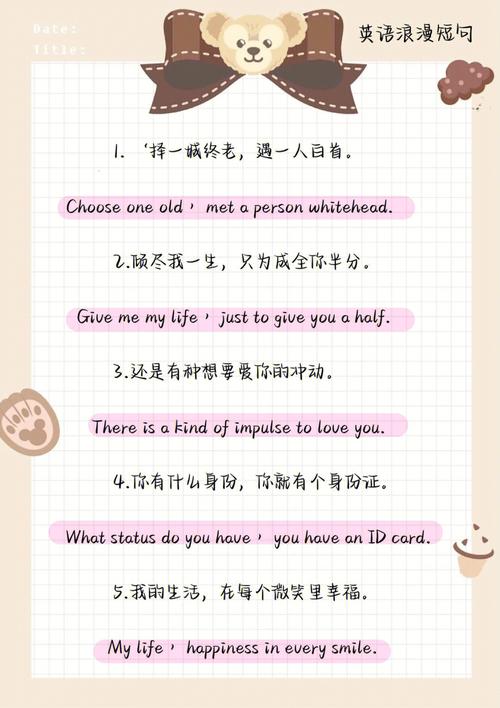 Date:
Title:
英语浪漫短句
1. ‘择一城终老，遇一人白首。
Choose one old，met a person whitehead.
2.倾尽我一生，只为成全你半分。
Give me my life，just to give you a half.
3.还是有种想要爱你的冲动。
There is a kind of impulse to love you.
4.你有什么身份，你就有个身份证。
What status do you have，you have an ID card.
5.我的生活，在每个微笑里幸福。
My life，happiness in every smile.